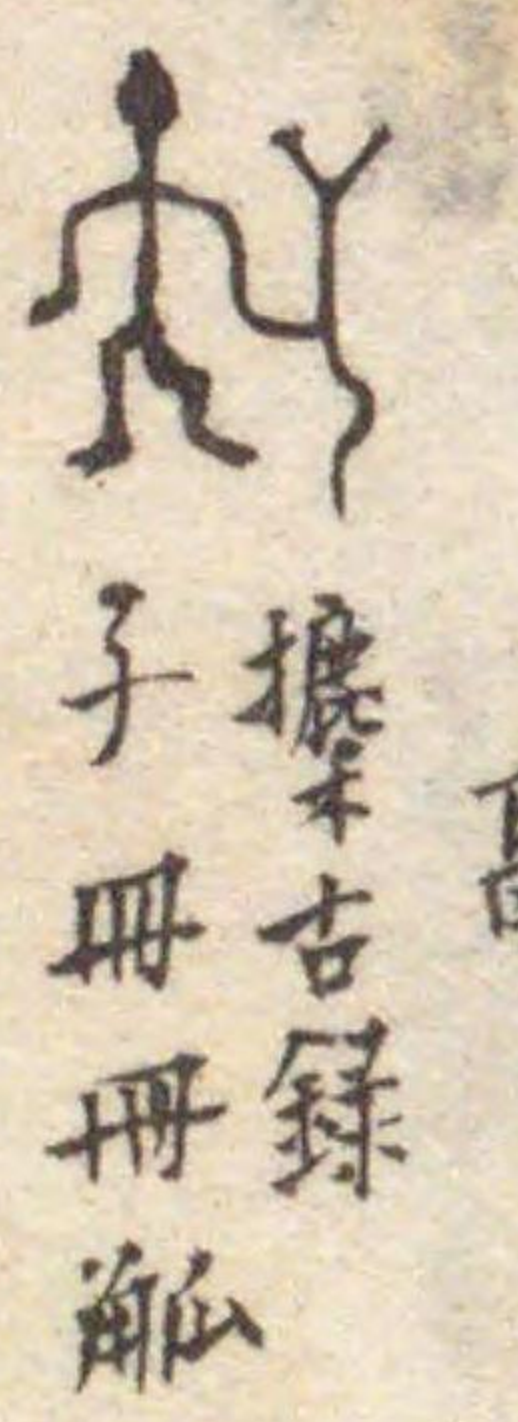 攈古録
子冊冊觚